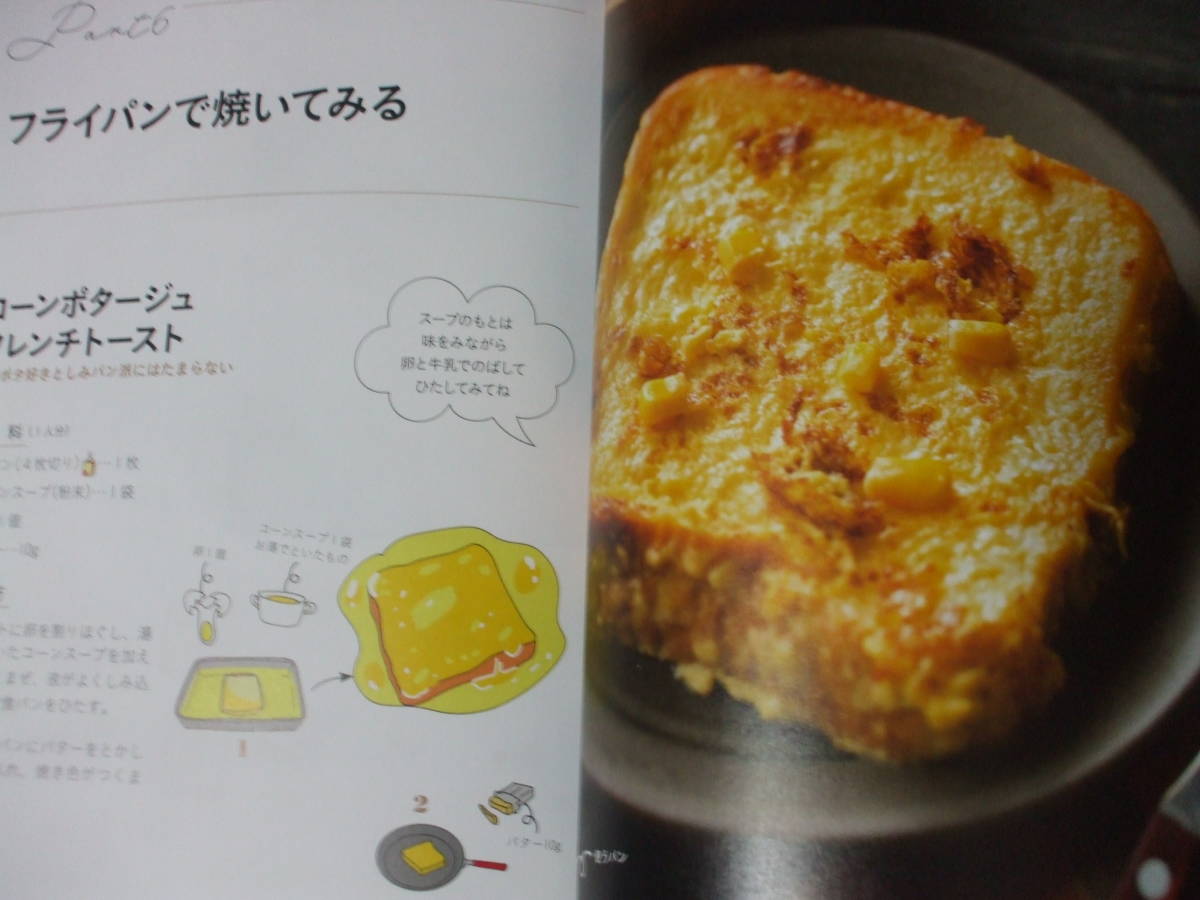 Part6
フライパンで焼いてみる
コーンポタージュ
フレンチトースト
ポタ好きとしみパン派にはたまらない
スープのもとは
味をみながら
卵と牛乳でのばして
ひたしてみてね
料(1人分)
ン(4枚切り)…1枚
ンスープ(粉末)…1袋
個
…10g
卵1個
コーンスープ1袋
お湯でといたもの
トに卵を割りほぐし、湯
いたコーンスープを加え
まぜ、液がよくしみ込
食パンをひたす。
1
パンにバターをとかし
れ、焼き色がつくま
2
バター10g
使うパン